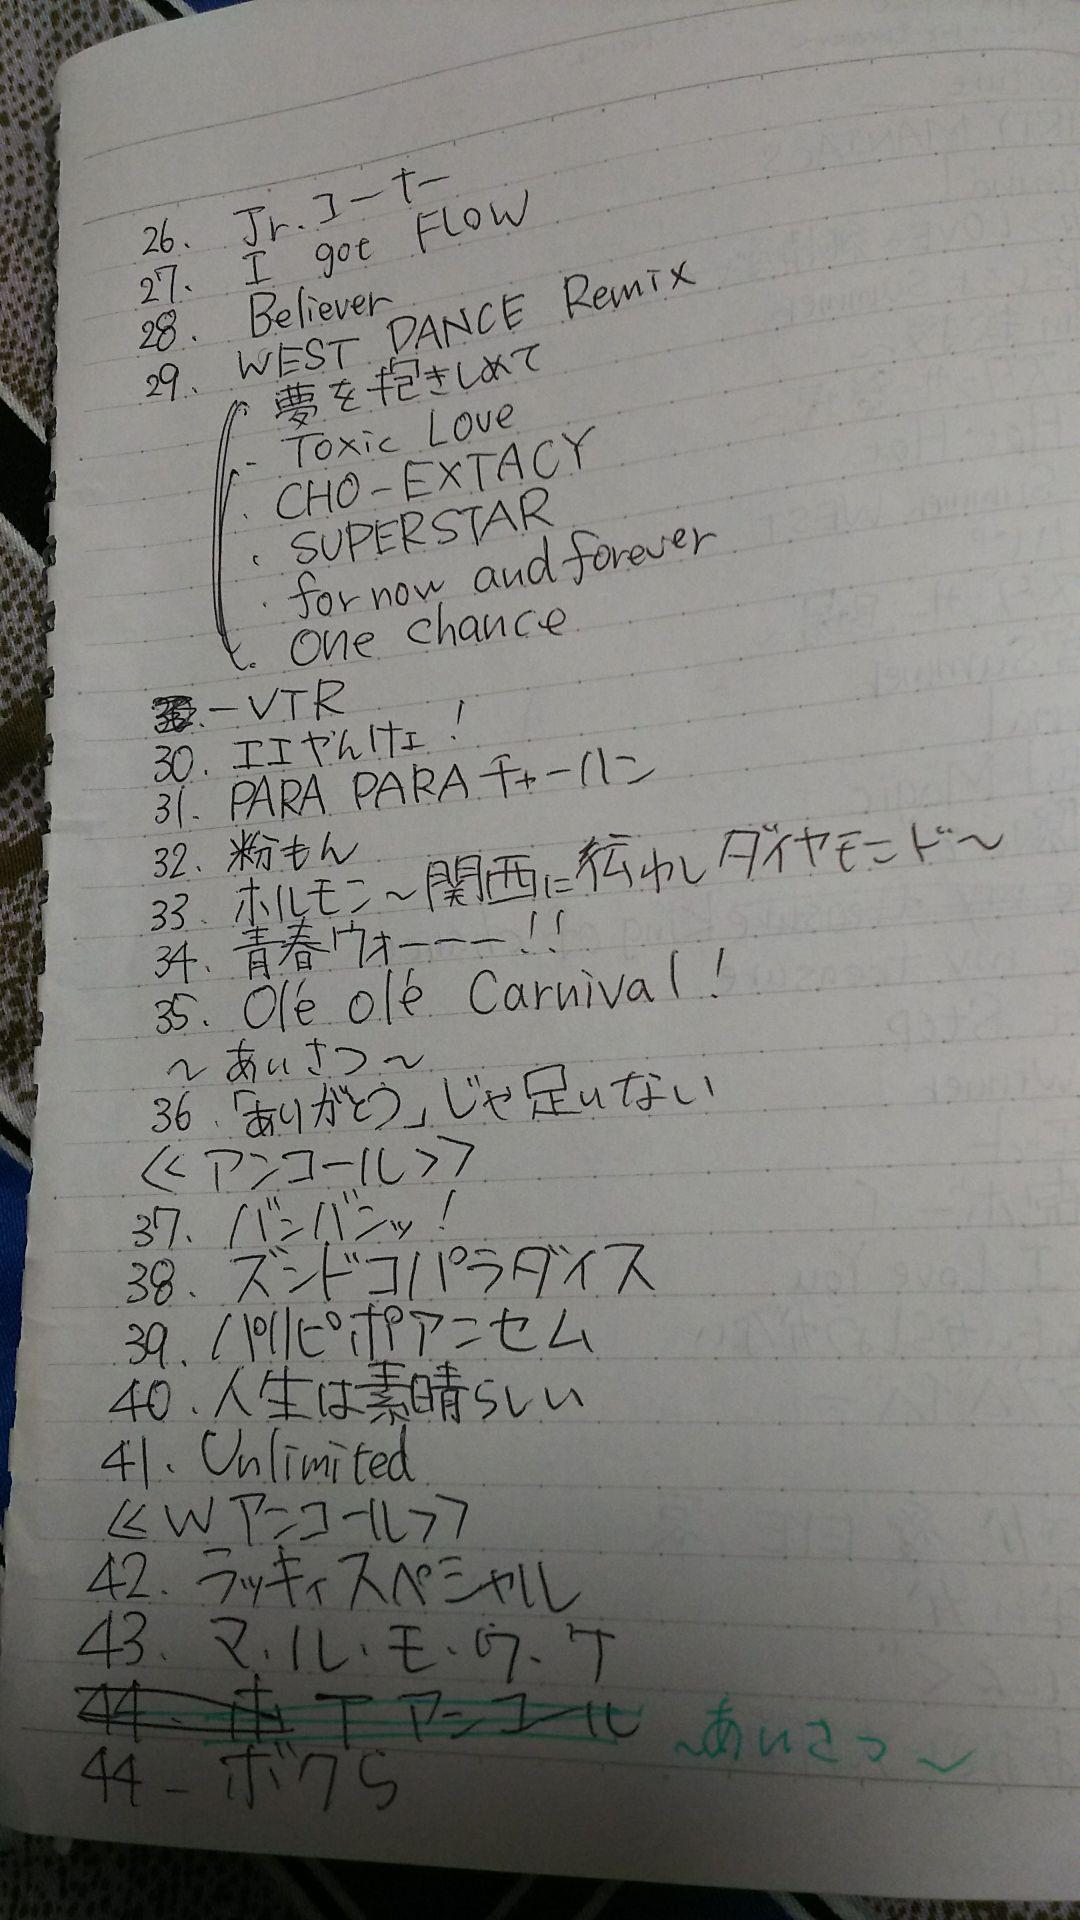 26. Jr.コーナー
27. I got FLOW
28. Believer
29. WEST DANCE Remix
夢を抱きしめて
Toxic Love
CHO-EXTACY
SUPERSTAR
for now and forever
One chance
-VTR
30. エエやんけェ!
31. PARA PARA チャーハン
32. 粉もん
33. ホルモン〜関西に伝わりしダイヤモンド〜
34. 青春ウォーーー!!
35. Olé olé Carnival!
〜あいさつ〜
36. 「ありがとう」じゃ足りない
≪アンコール≫
37. バンバンッ!
38. ズンドコパラダイス
39. パリピポアンセム
40. 人生は素晴らしい
41. Unlimited
≪Wアンコール≫
42. ラッキィスペシャル
43. マ・ル・モ・ウ・ケ
アンコール 〜あいさつ〜
44- ボクら